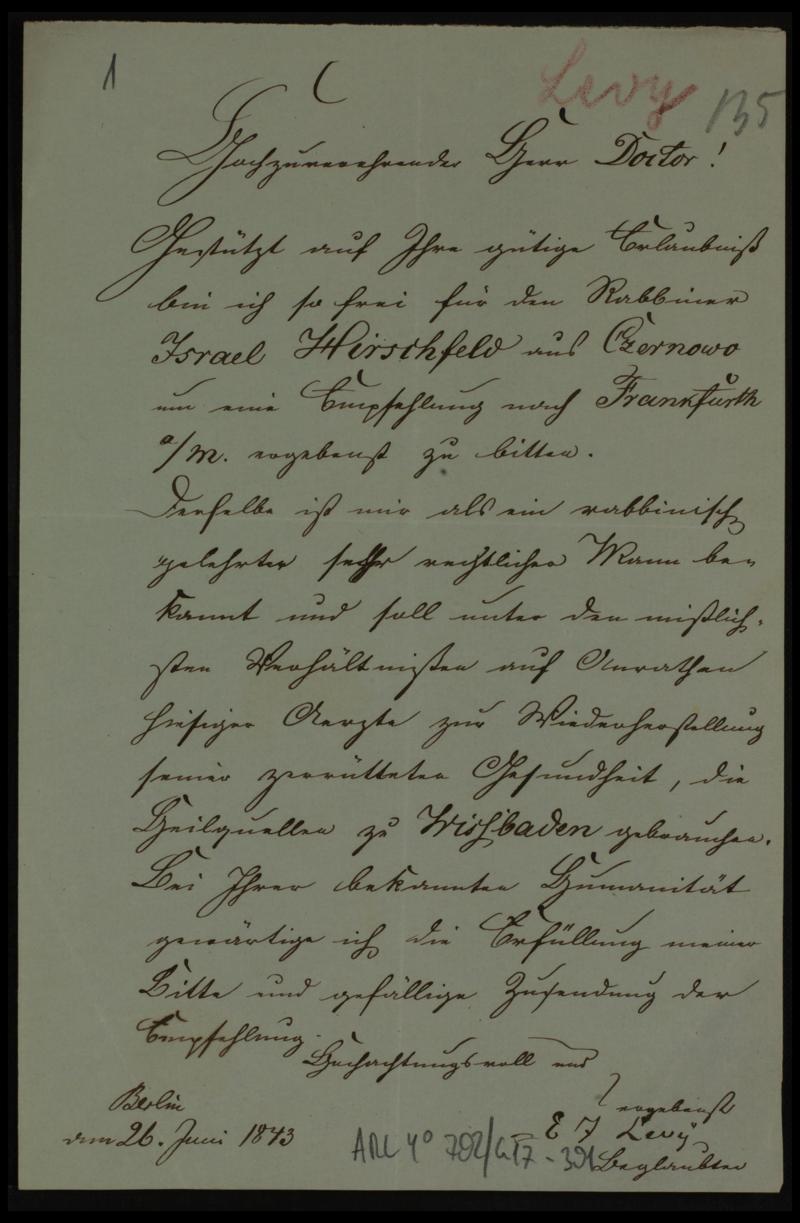 1
Levy 135
Hochzuverehrender Herr Doctor!
Gestützt auf Ihre gütige Erlaubniß
bin ich so frei für den Rabbiner
Israel Hirschfeld aus Czernowo
um eine Empfehlung nach Frankfurth
a/M. ergebenst zu bitten.
Derselbe ist mir als ein rabbinisch
gelehrter sehr rechtlicher Mann be-
kannt und soll unter den mißlich-
sten Verhältnißen auf Anrathen
hiesiger Aerzte zur Wiederherstellung
seiner zerrütteten Gesundheit, die
Heilquellen zu Wisbaden gebrauchen.
Bei Ihrer bekannten Humanität
gewärtige ich die Erfüllung meiner
Bitte und gefällige Zusendung der
Empfehlung.
Hochachtungsvoll und
ergebenst
Berlin
den 26. Juni 1843
E J Levÿ
Beglaubter
ARC 4° 792/